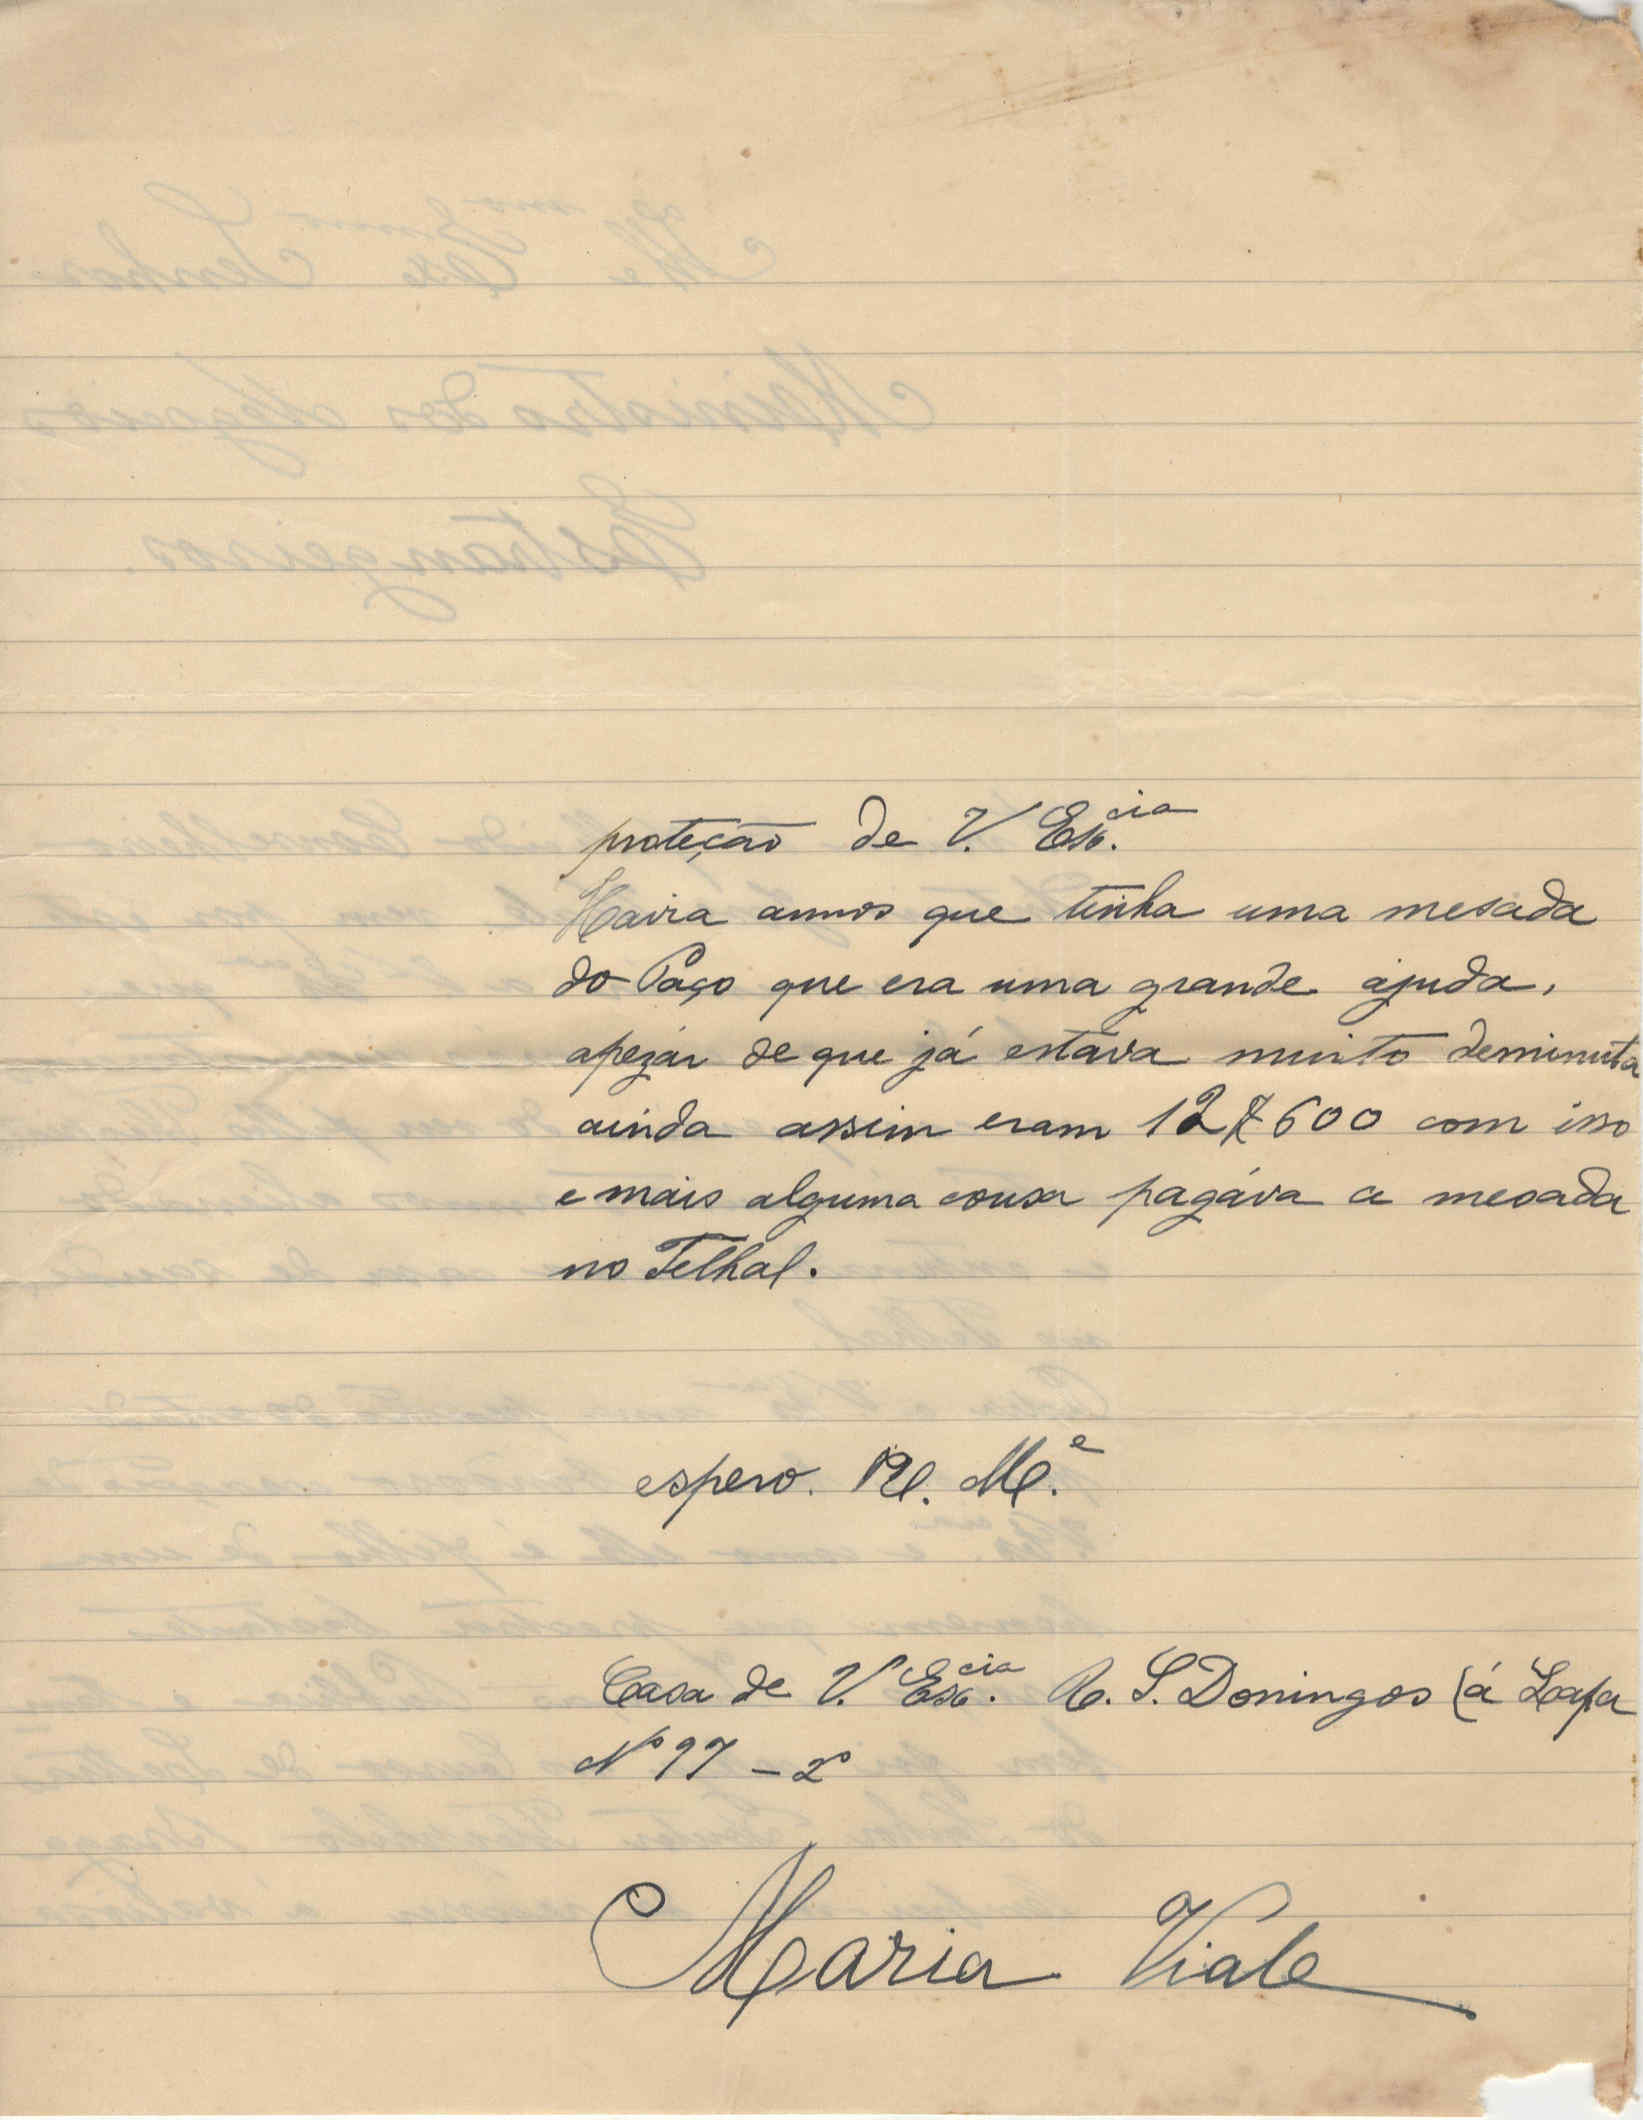 proteção de V. Ex.cia
Havia annos que tinha uma mesada
do Paço que era uma grande ajuda,
apezár de que já estava muito deminuta
ainda assim eram 12$600 com isso
e mais alguma cousa pagáva a mesada
no Telhal.
espero. R. M.e
Casa de V. Ex.cia R. S. Domingos (á Lapa
Nº 97 - 2º
Maria Viale